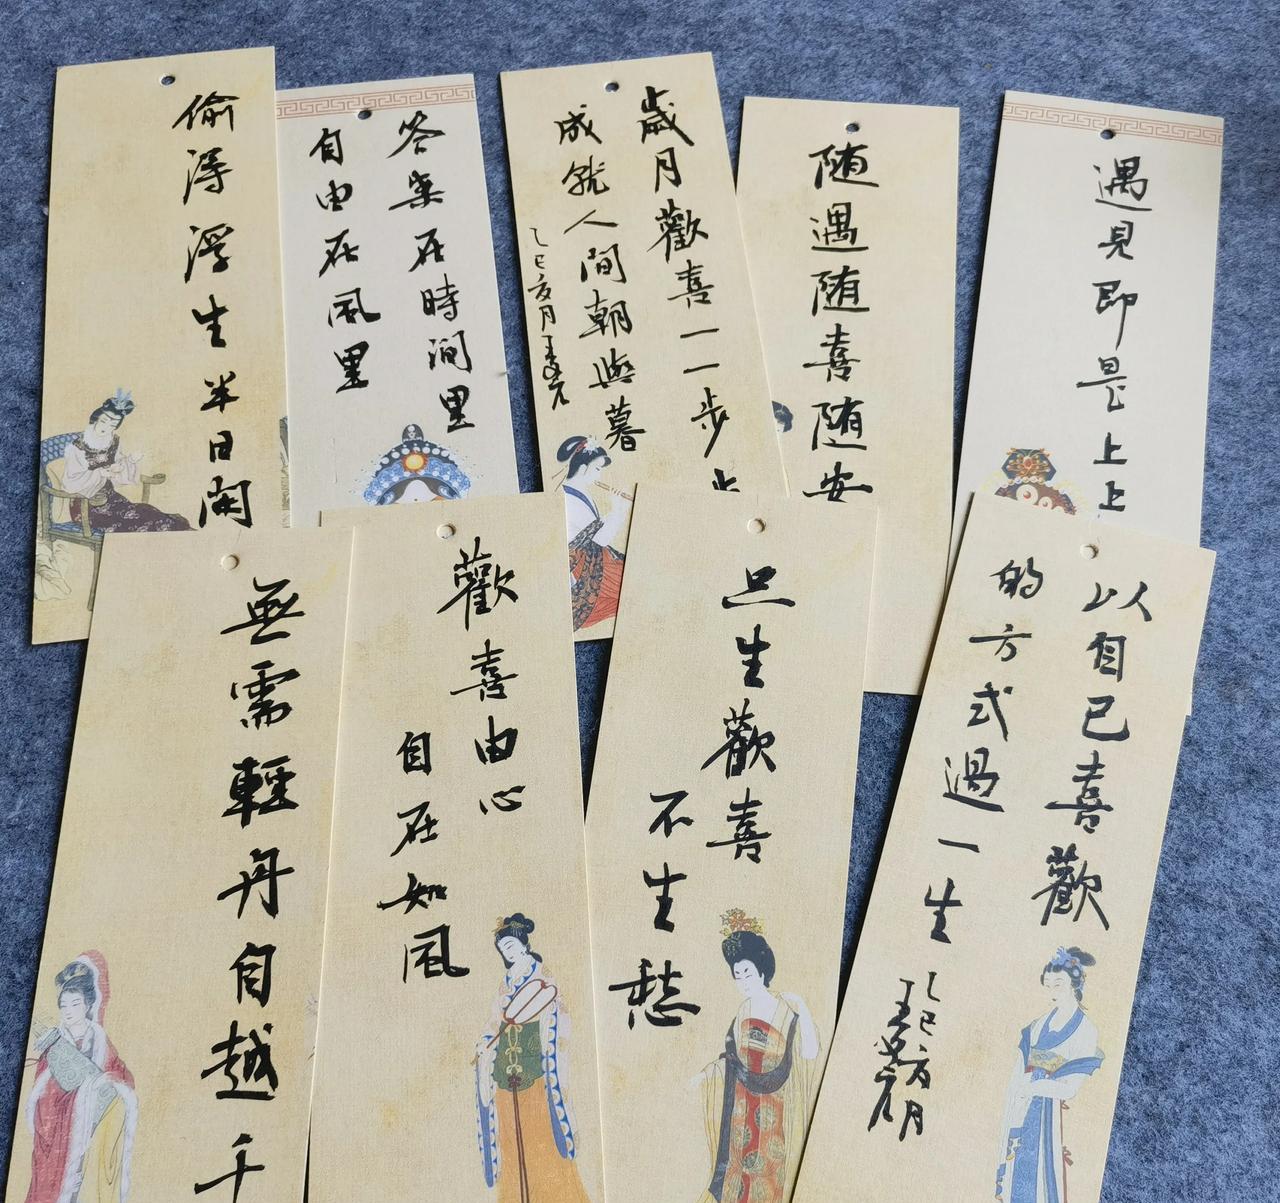 偷得浮生半日閑
答案在時間里
自由在風里
歲月歡喜一一步步
成就人間朝與暮
乙巳亥月
随遇随喜随安
遇見即是上上
無需輕舟自越千
歡喜由心
自在如風
只生歡喜
不生愁
以自己喜歡
的方式過一生
乙巳亥月